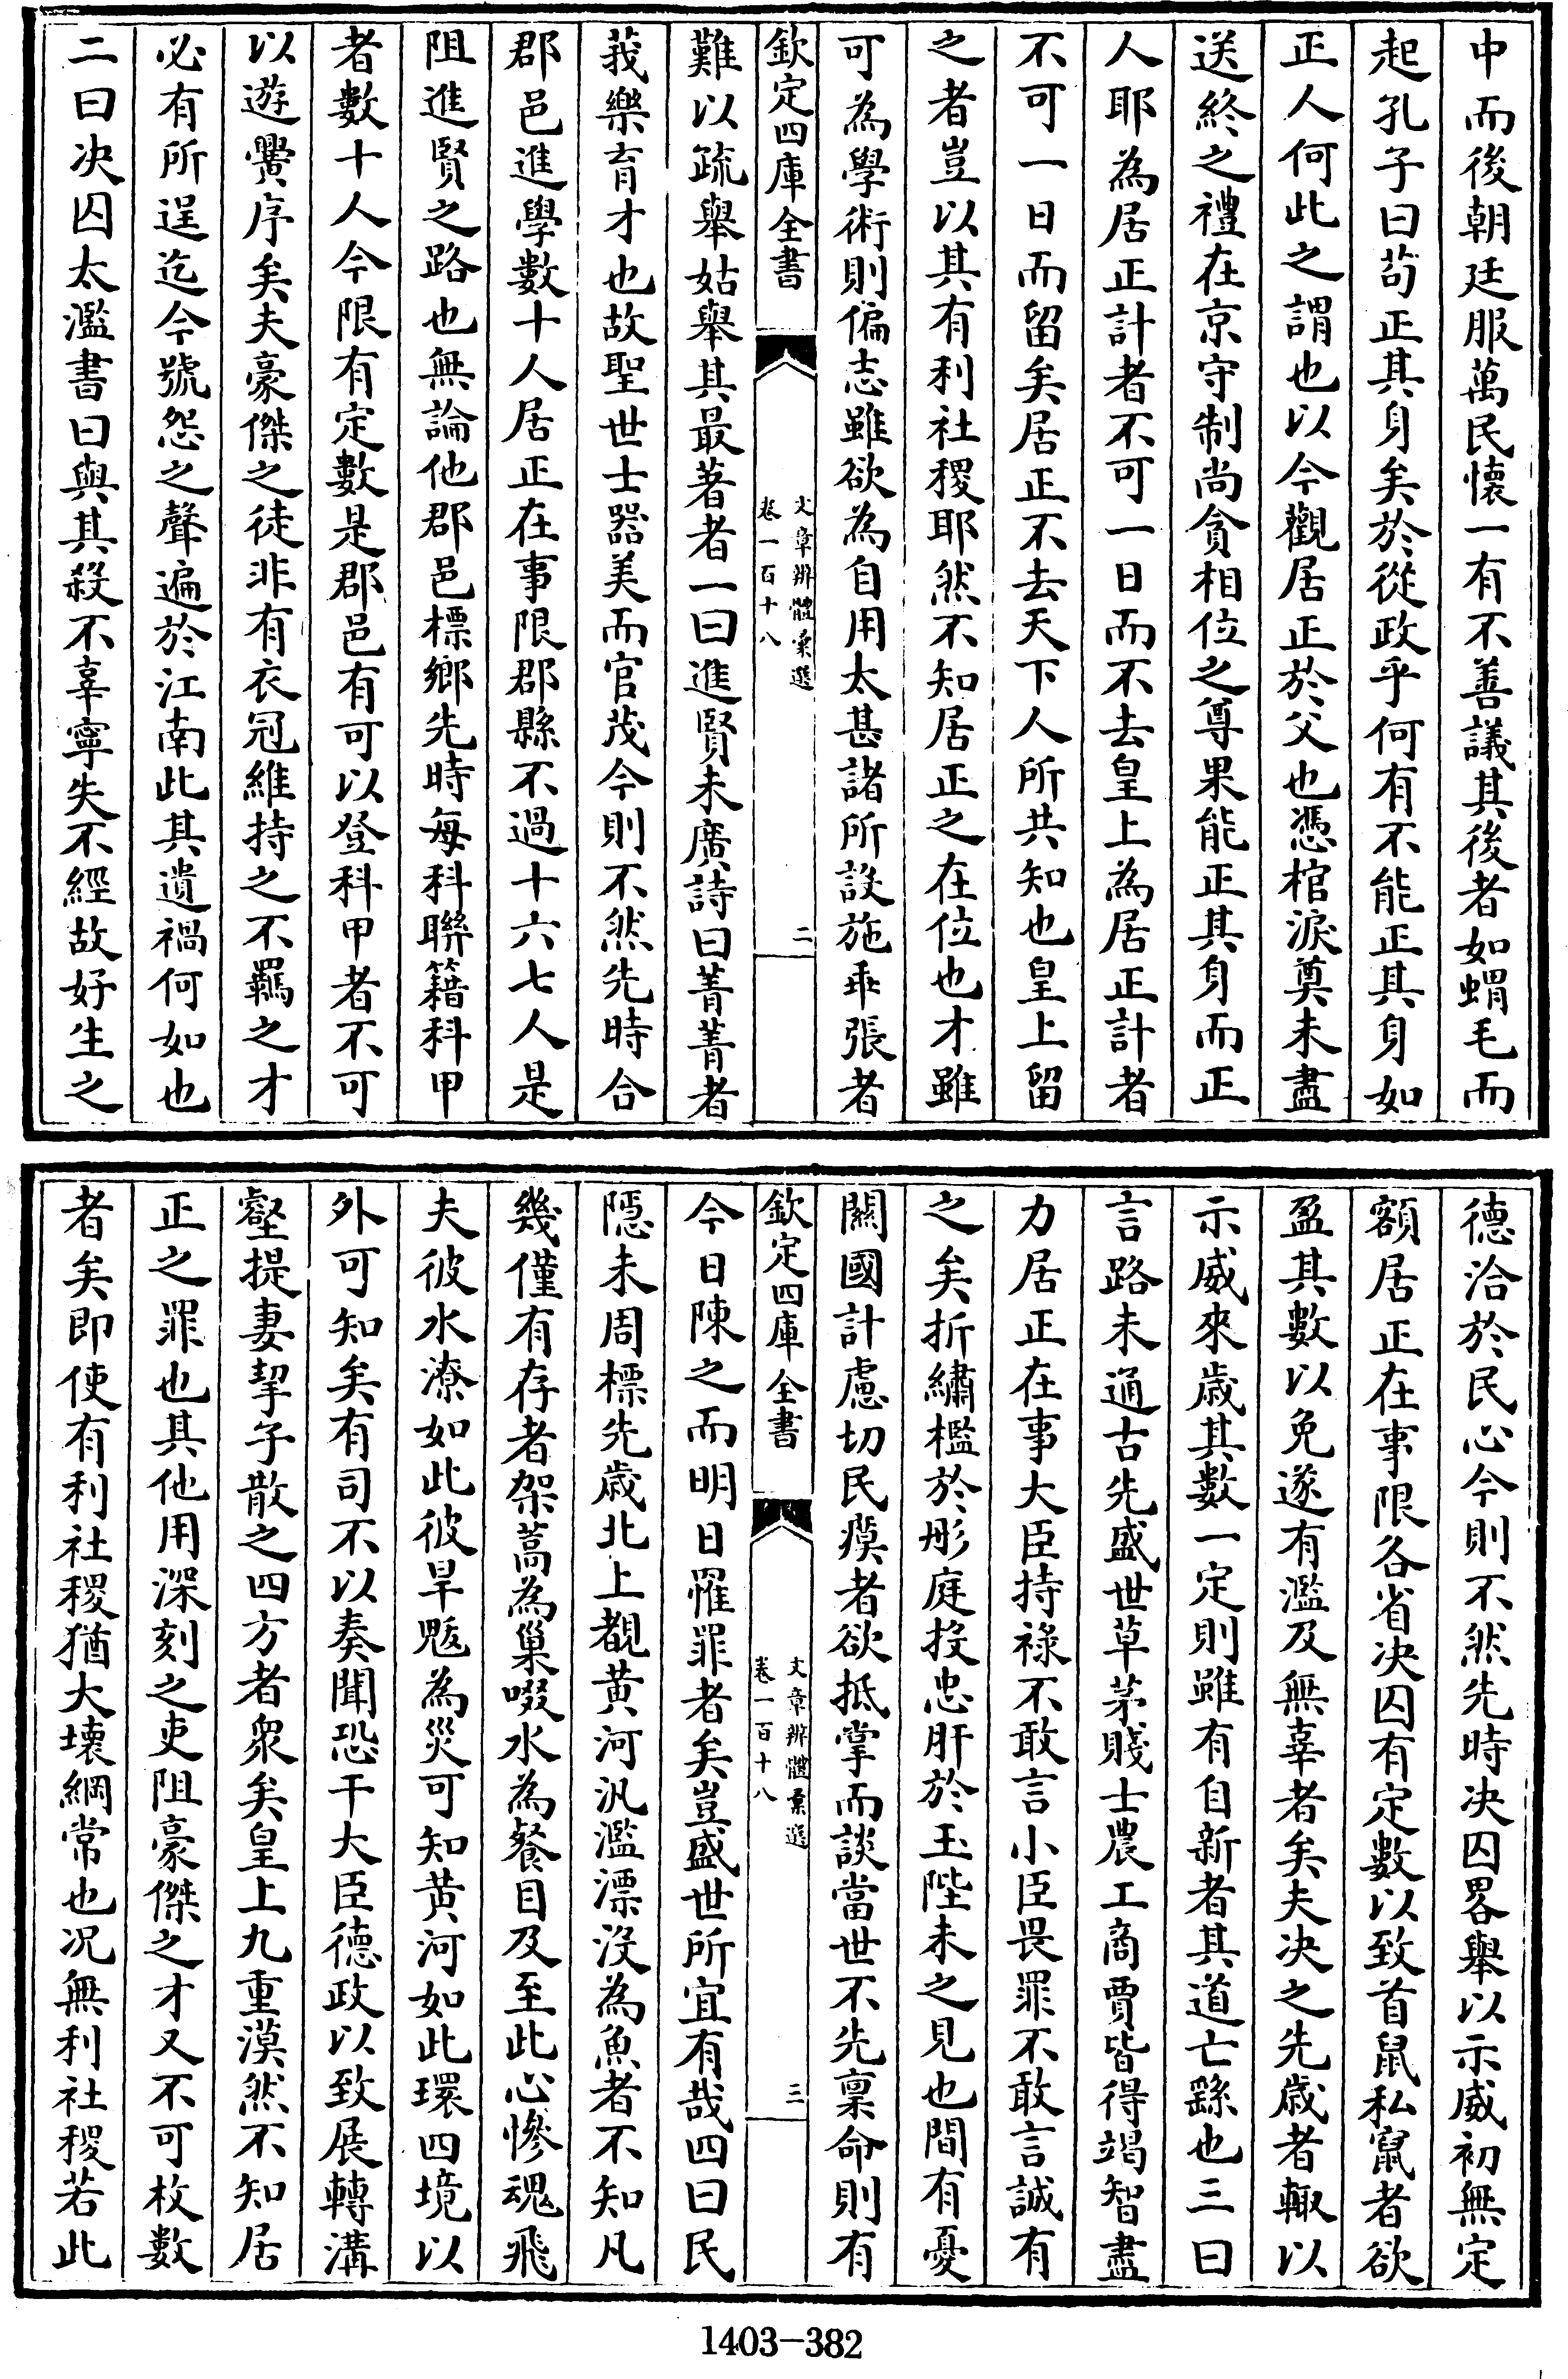 中而後朝廷服萬民懷一有不善議其後者如蝟毛而
起孔子曰苟正其身矣於從政乎何有不能正其身如
正人何此之謂也以今觀居正於父也憑棺淚奠未盡
送終之禮在京守制尚貪相位之尊果能正其身而正
人耶為居正計者不可一日而不去皇上為居正計者
不可一日而留矣居正不去天下人所共知也皇上留
之者豈以其有利社稷耶然不知居正之在位也才雖
可為學術則偏志雖欲為自用太甚諸所設施乖張者
欽定四庫全書
文章辨體彙選
卷一百十八
二
難以疏舉姑舉其最著者一曰進賢未廣詩曰菁菁者
莪樂育才也故聖世士器美而官茂今則不然先時合
郡邑進學數十人居正在事限郡縣不過十六七人是
阻進賢之路也無論他郡邑標鄉先時每科聯籍科甲
者數十人今限有定數是郡邑有可以登科甲者不可
以遊黌序矣夫豪傑之徒非有衣冠維持之不羈之才
必有所逞迄今號怨之聲遍於江南此其遺禍何如也
二曰决囚太濫書曰與其殺不辜寧失不經故好生之
德洽於民心今則不然先時决囚畧舉以示威初無定
額居正在事限各省决囚有定數以致首鼠私竄者欲
盈其數以免遂有濫及無辜者矣夫决之先歲者輙以
示威來歲其數一定則雖有自新者其道亡繇也三曰
言路未通古先盛世草茅賤士農工商賈皆得竭智盡
力居正在事大臣持祿不敢言小臣畏罪不敢言誠有
之矣折繡檻於彤庭投忠肝於玉陛未之見也間有憂
關國計慮切民瘼者欲抵掌而談當世不先稟命則有
欽定四庫全書
文章辨體彙選
卷一百十八
三
今日陳之而明日罹罪者矣豈盛世所宜有哉四曰民
隱未周標先歲北上覩黄河汎濫漂沒為魚者不知凡
幾僅有存者架蒿為巢啜水為餐目及至此心慘魂飛
夫彼水潦如此彼旱魃為災可知黄河如此環四境以
外可知矣有司不以奏聞恐干大臣德政以致展轉溝
壑提妻挈子散之四方者衆矣皇上九重漠然不知居
正之罪也其他用深刻之吏阻豪傑之才又不可枚數
者矣即使有利社稷猶大壞綱常也况無利社稷若此
1403-382